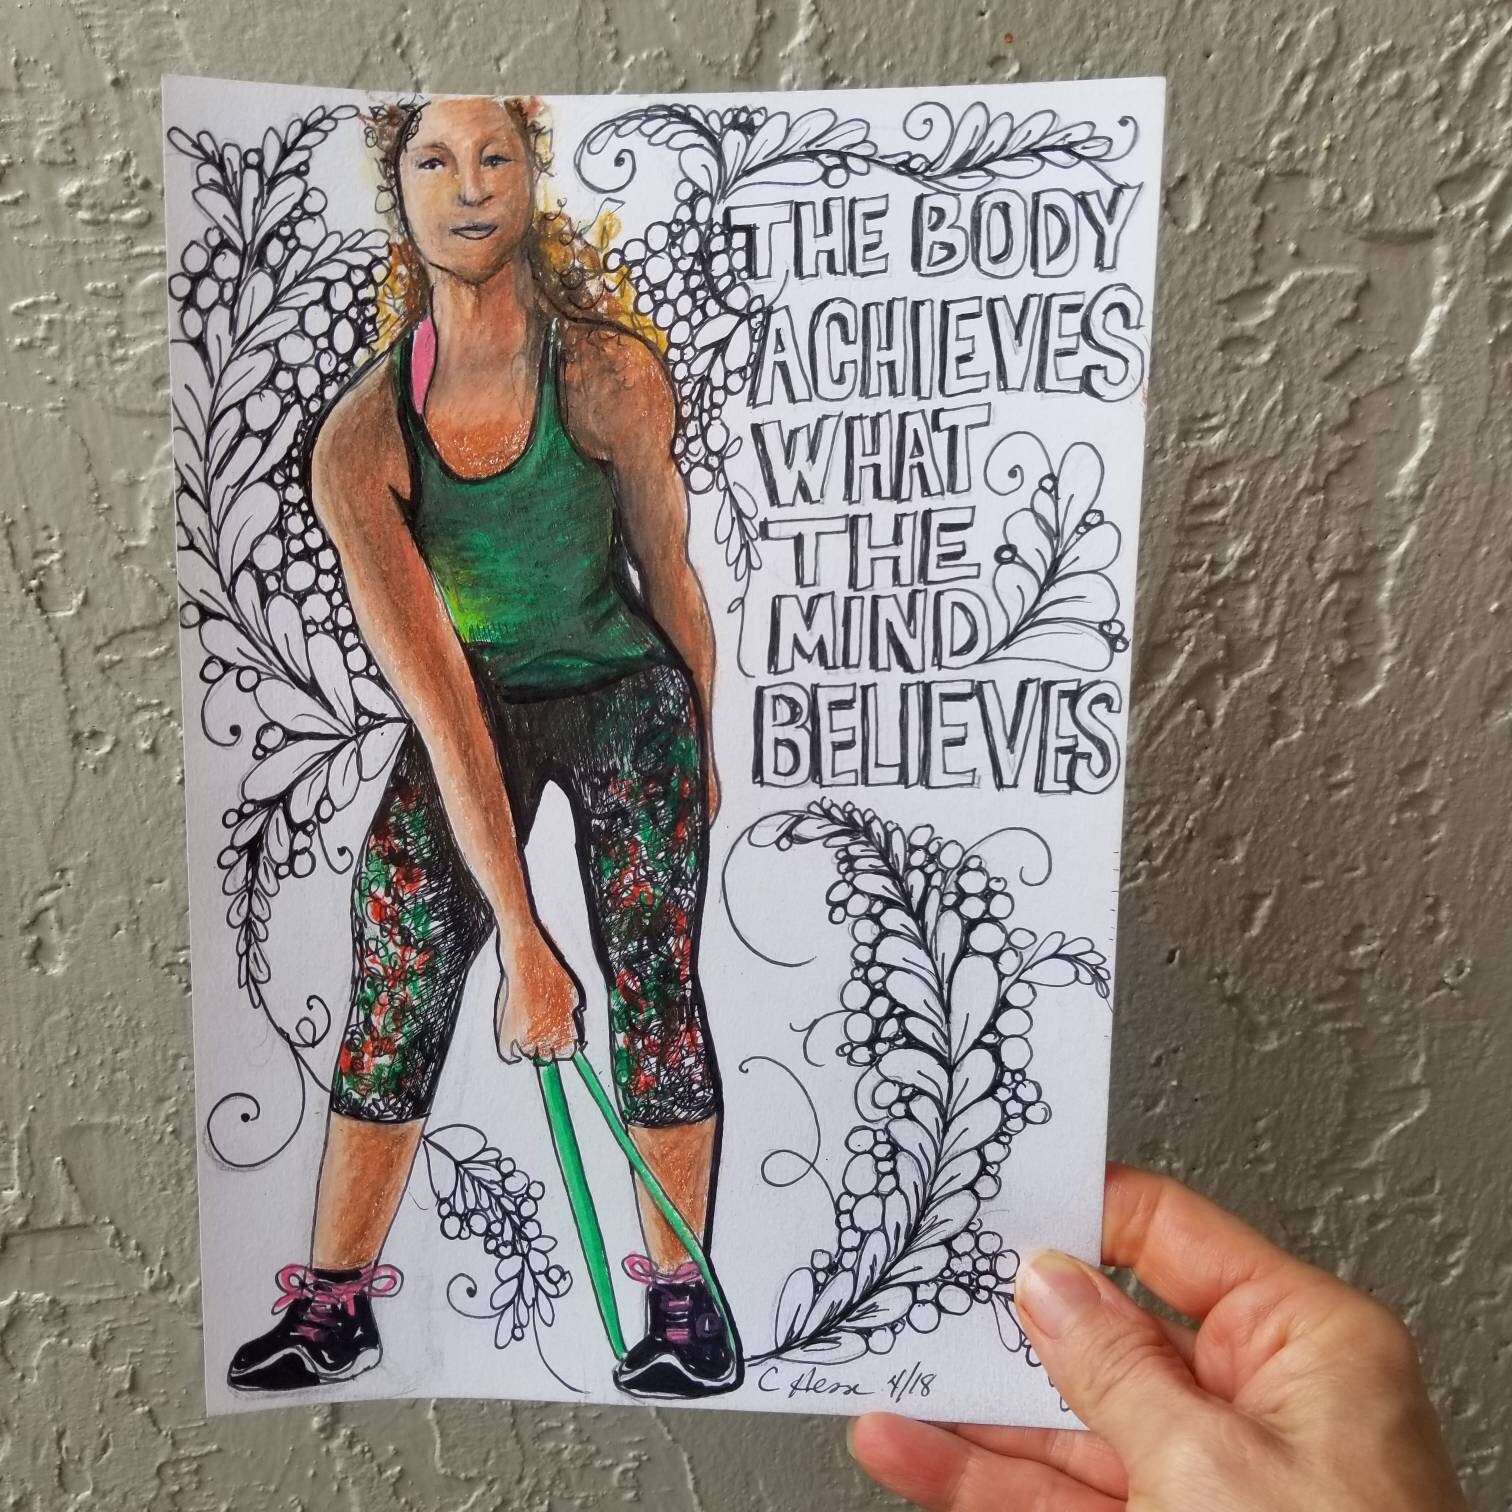 THE BODY
ACHIEVES
WHAT
THE
MIND
BELIEVES
C Hesse 4/18